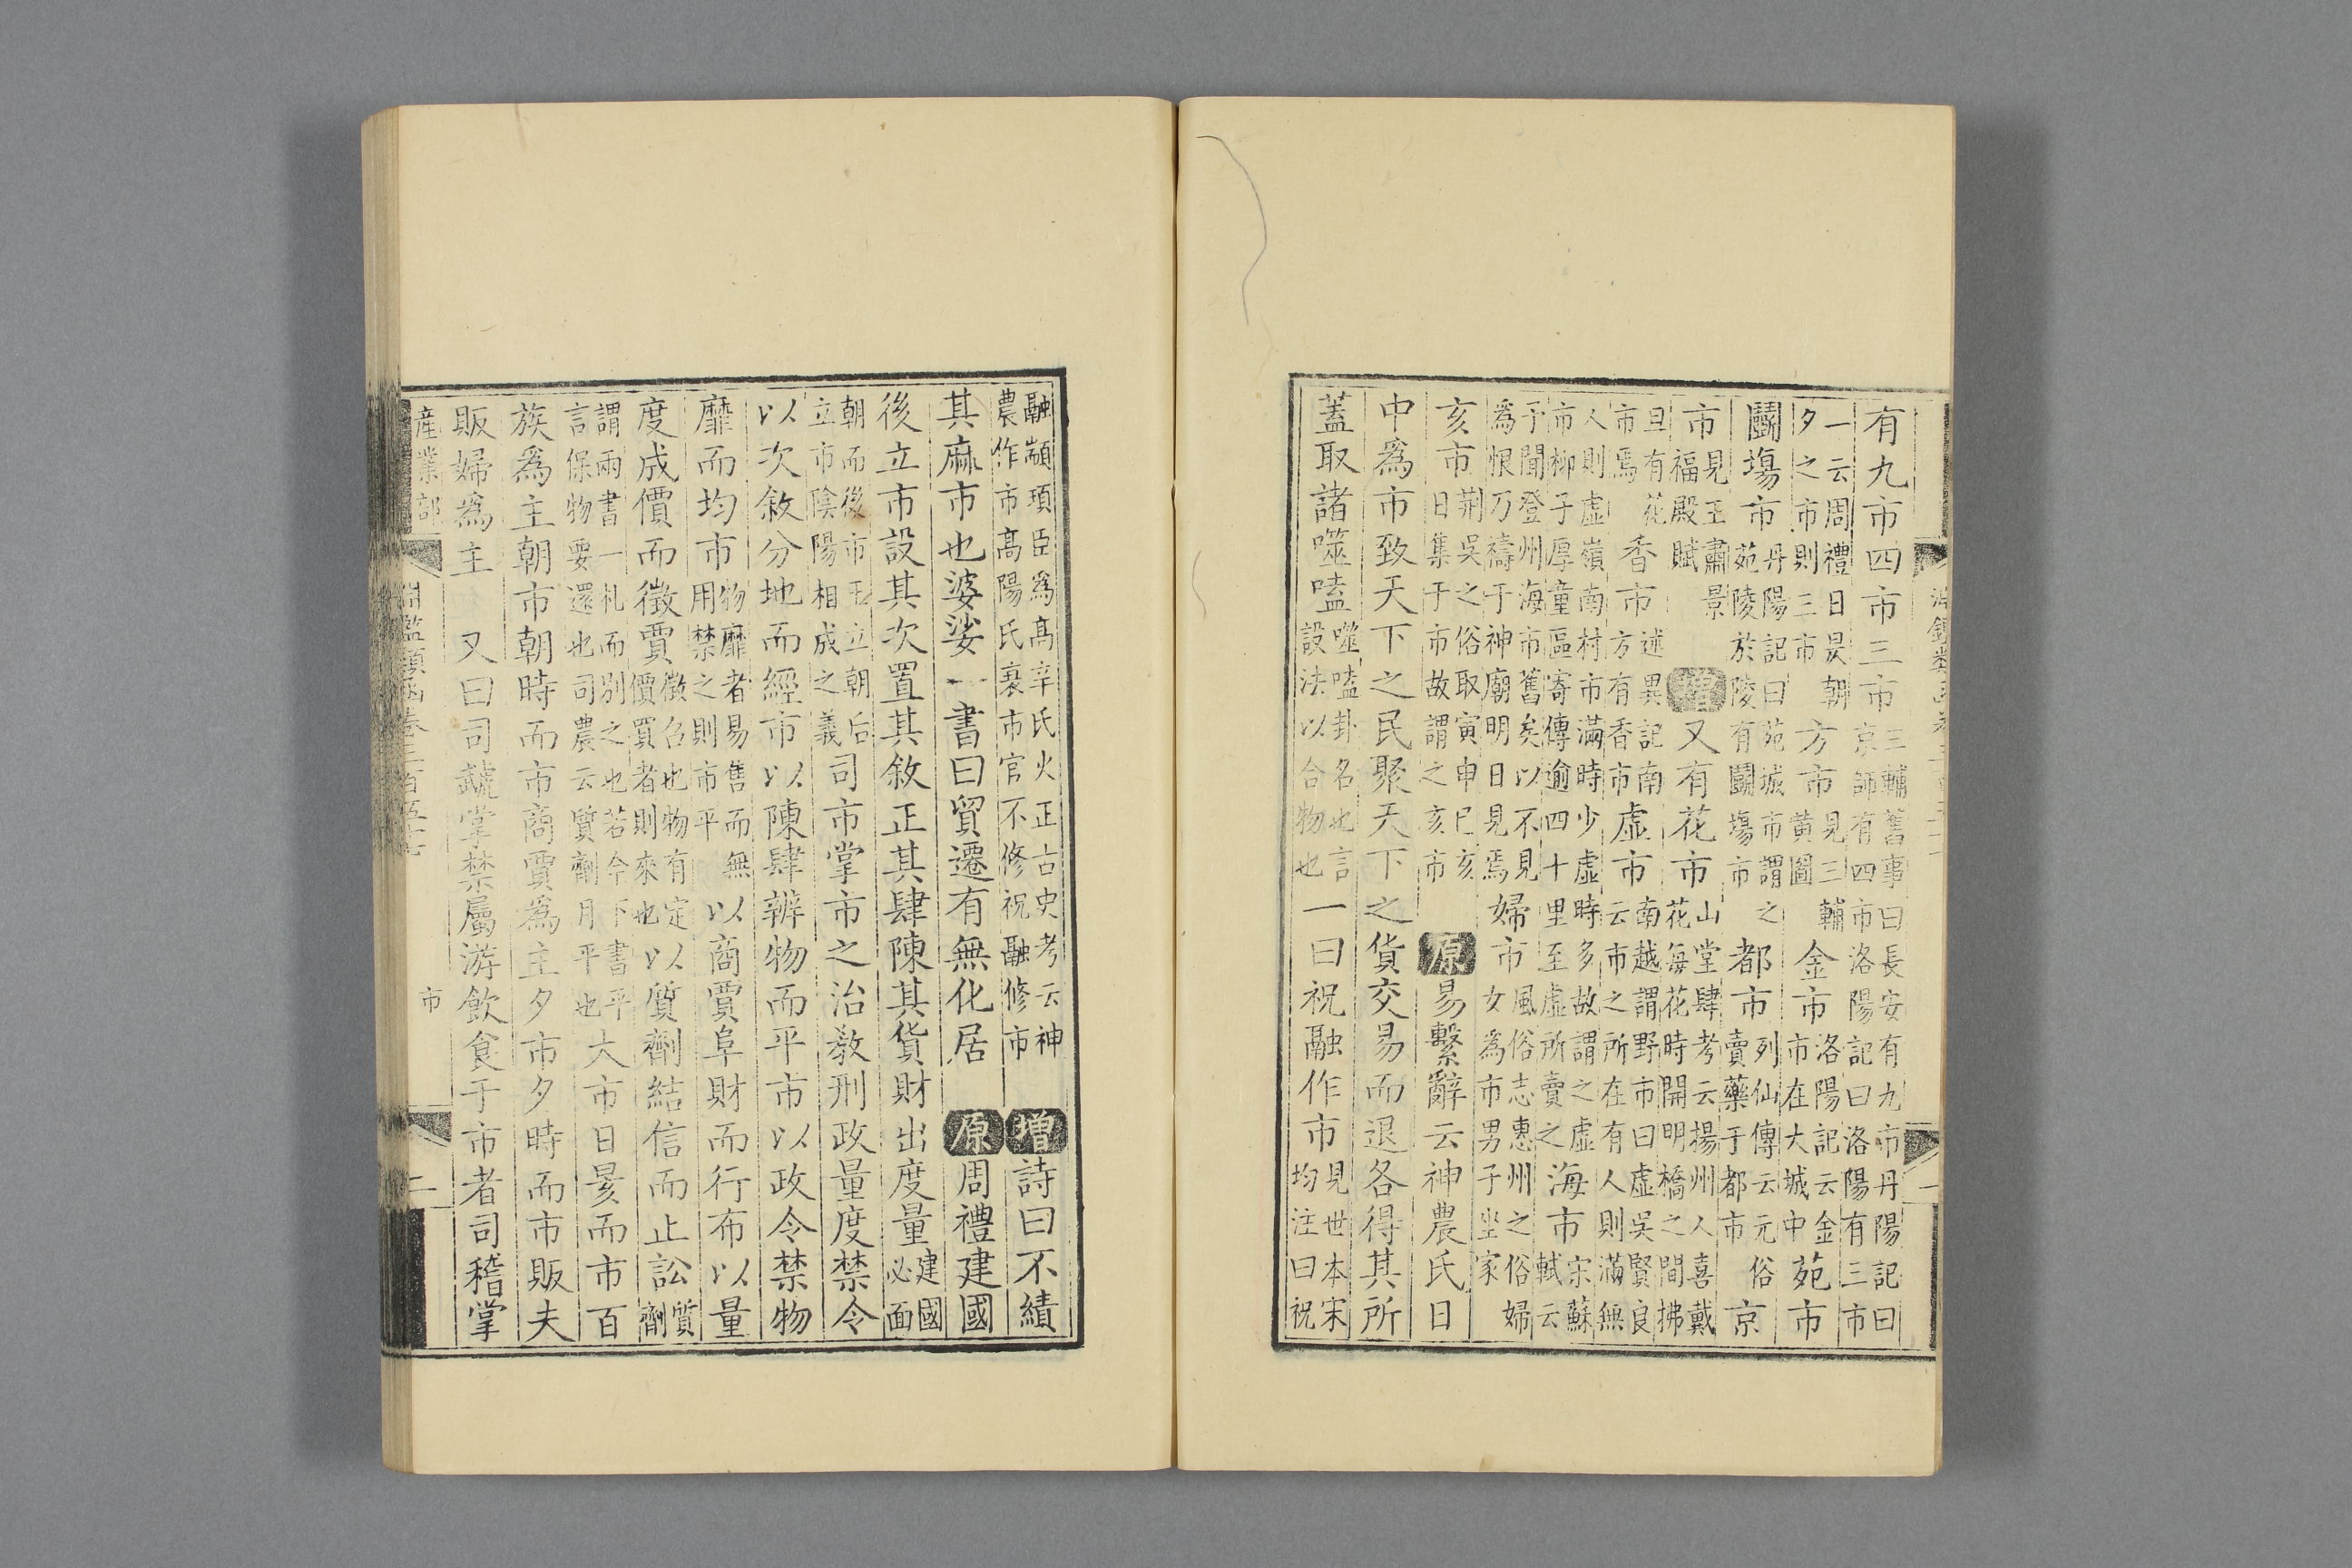 有九市四市三市三輔舊事曰長安有九市丹陽記曰京師有四市洛陽記曰洛陽有三市
一云周禮日昃朝夕之市則三市方市見三輔黃圖金市洛陽記云金市在大城中苑市
鬭塲市丹陽記曰苑城市謂之苑陵族陵有鬭塲市都市列仙傳云元俗賣藥于都市京
市見王肅景福殿賦增又有花市山堂肆考云揚州人喜戴花每花時開明橋之間拂
旦有花市焉香市述異記南方有香市虛市南越謂野市曰虛吳賢良云市之所在有人則滿無
人則虛嶺南村市滿時少虛時多故謂之虛市柳子厚童區寄傳逾四十里至虛所賣之海市宋蘇軾云
予聞登州海市舊矣以不見爲恨乃禱于神廟明日見焉婦市風俗志惠州之俗婦女爲市男子坐家
亥市荆吳之俗取寅申巳亥日集于市故謂之亥市原易繫辭云神農氏日
中爲市致天下之民聚天下之貨交易而退各得其所
蓋取諸噬嗑噬嗑卦名也言設法以合物也一曰祝融作市見世本宋均注曰祝
融顓頊臣爲高辛氏火正古史考云神農作市高陽氏衰市官不修祝融修市增詩曰不績
其麻市也婆娑一書曰貿遷有無化居原周禮建國
後立市設其次置其敘正其肆陳其貨財出度量建國必面
朝而後市王立朝后立市陰陽相成之義司市掌市之治敎刑政量度禁令
以次敘分地而經市以陳肆辨物而平市以政令禁物
靡而均市物靡者易售而無用禁之則市平以商賈阜財而行布以量
度成價而徵賈徵召也物有定價買者則來也以質劑結信而止訟質劑
謂兩書一札而别之也若今下書平言保物要還也司農云質劑月平也大市日昃而市百
族爲主朝市朝時而市商賈爲主夕市夕時而市販夫
販婦爲主 又曰司虣掌禁屬游飲食于市者司稽掌
產業部 淵鑑類函卷三百五十七 市 二